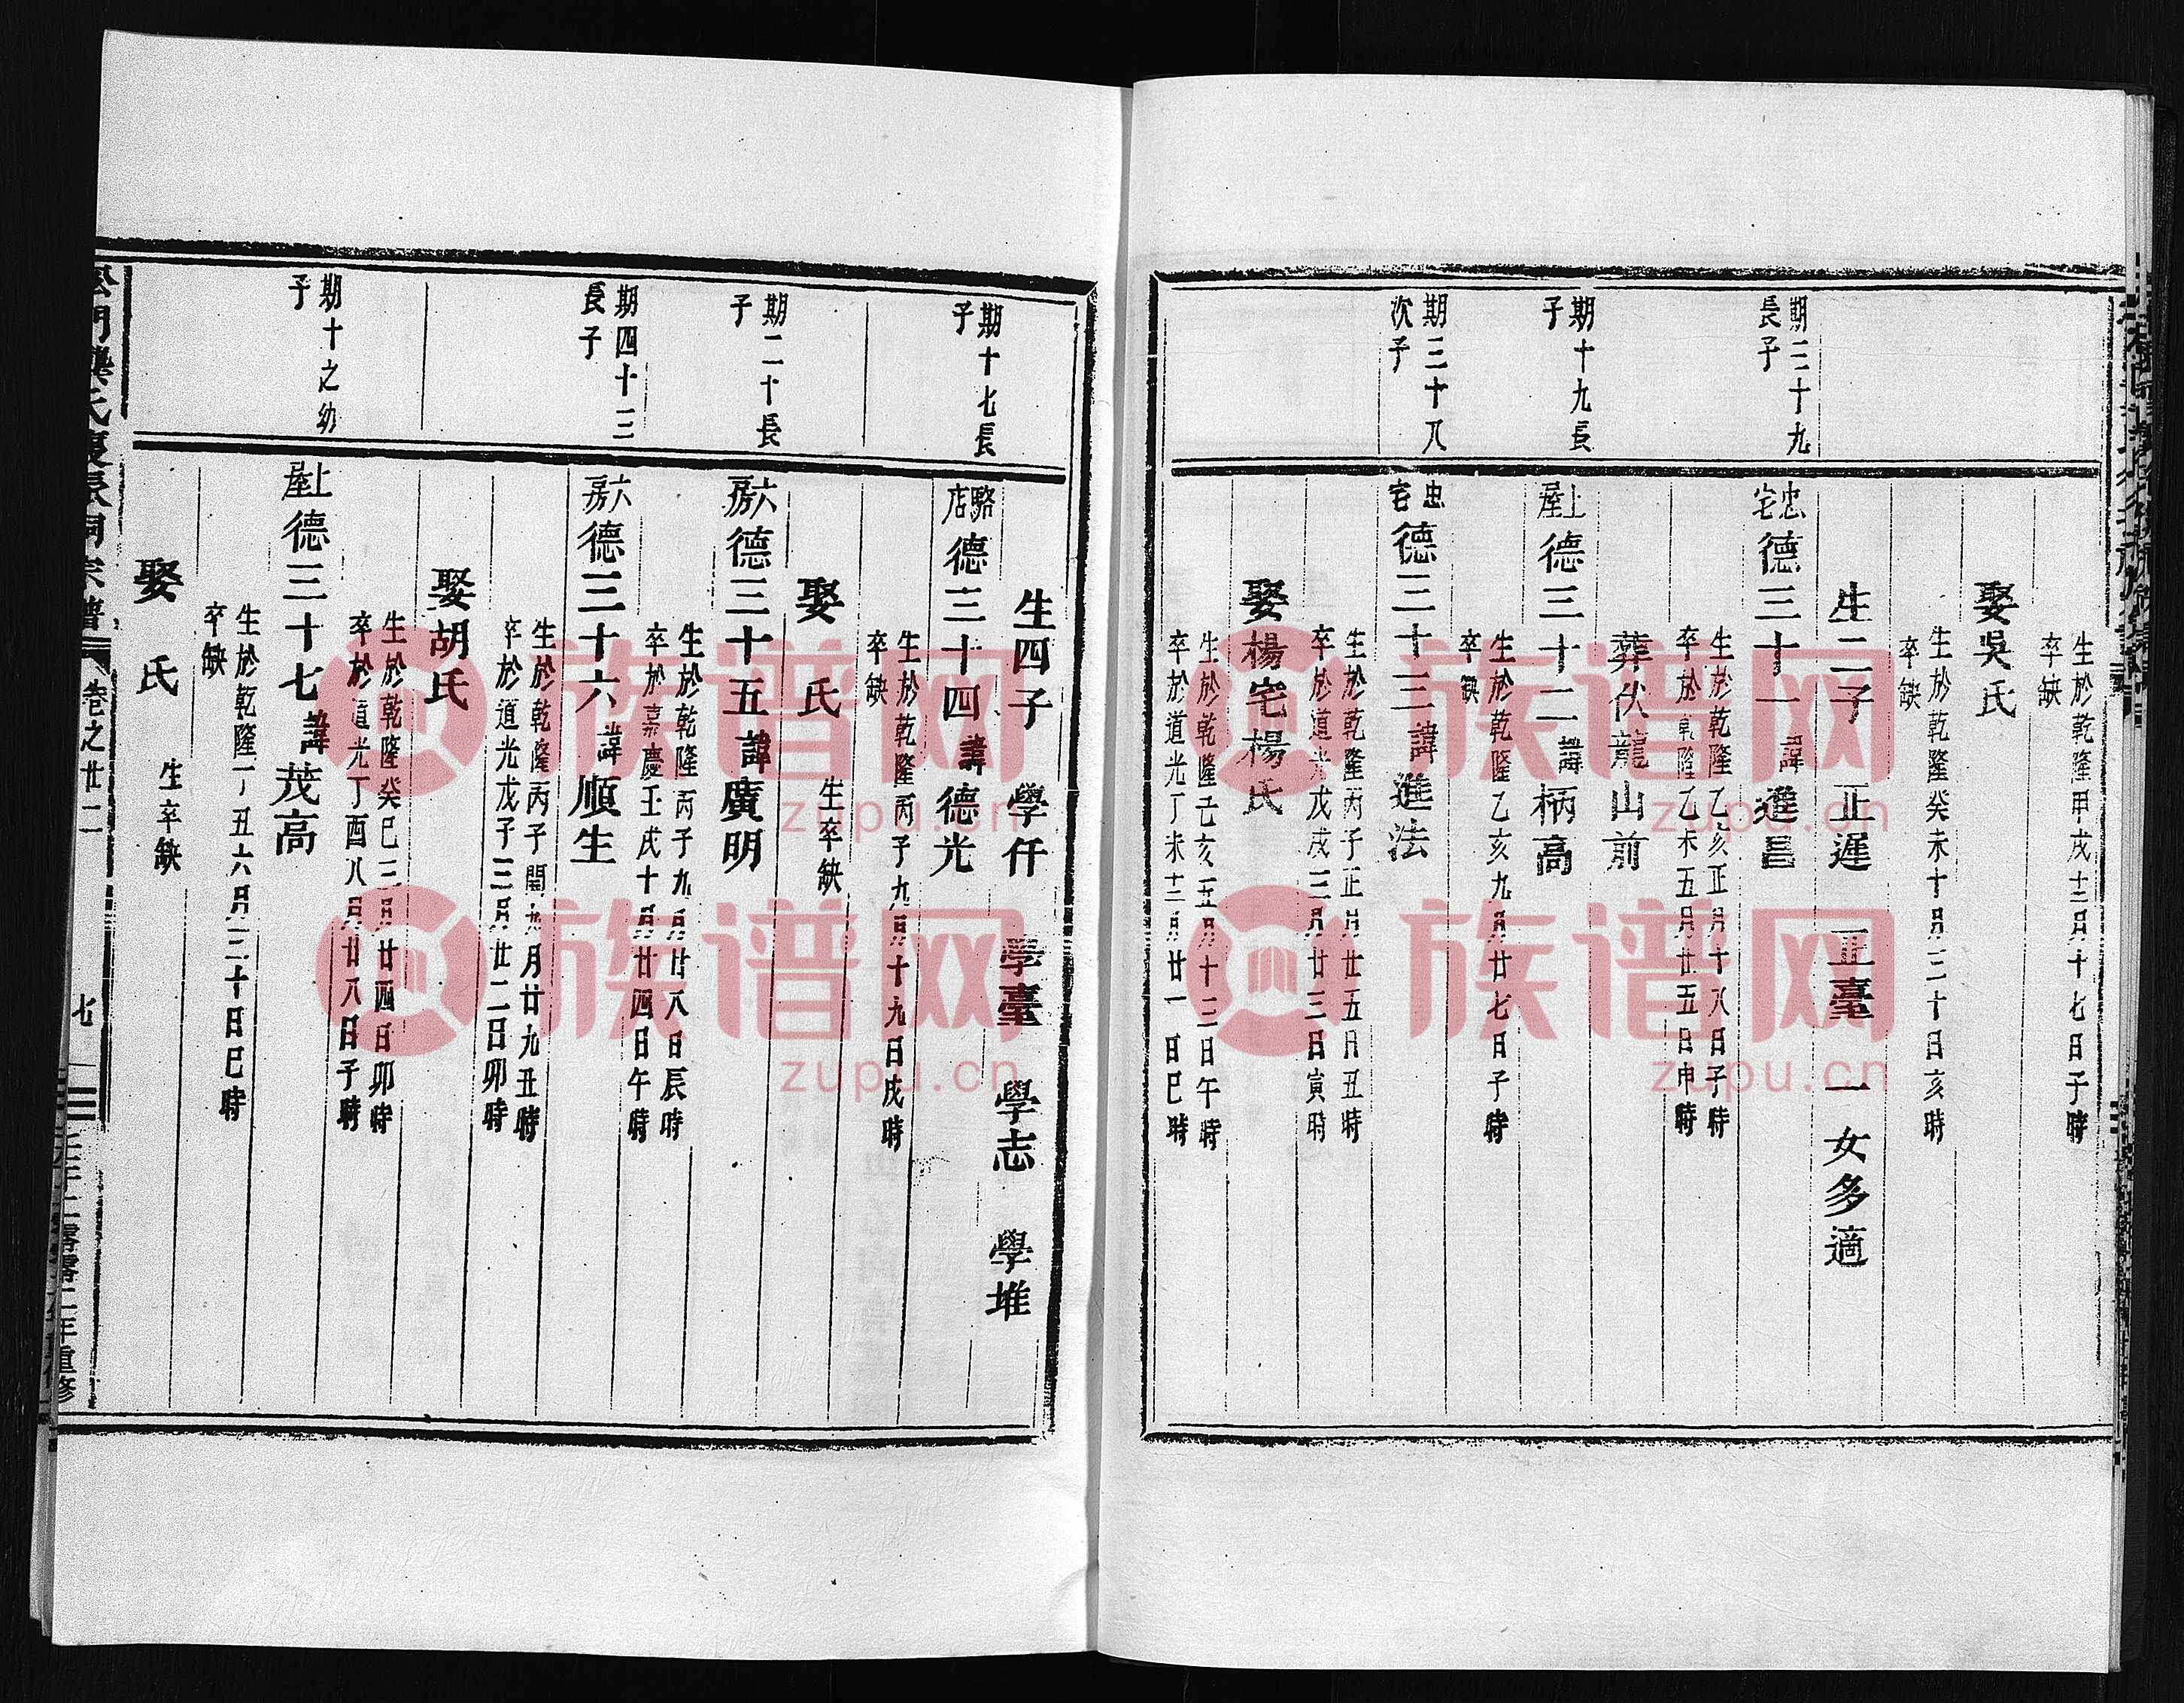 生於乾隆甲戌十二月十七日子時
卒缺
娶吳氏
生於乾隆癸未十月二十日亥時
卒缺
生二子 正遲 正臺 一女多適
期二十九
長子
忠宅德三十一諱進昌
生於乾隆乙亥正月十八日子時
卒於乾隆乙未五月廿五日申時
葬伏龍山前
期十九長
子
上屋德三十二諱柄高
生於乾隆乙亥九月廿七日子時
卒缺
期三十八
次子
忠宅德三十三諱進法
生於乾隆丙子正月廿五日丑時
卒於道光戊戌三月廿三日寅時
娶楊宅楊氏
生於乾隆己亥五月十三日午時
卒於道光丁未十二月廿一日巳時
生四子 學仟 學臺 學志 學堆
期十七長
子
駱店德三十四諱德光
生於乾隆丙子九月十九日戌時
卒缺
娶 氏 生卒缺
期二十長
子
六房德三十五諱廣明
生於乾隆丙子九月廿八日辰時
卒於嘉慶壬戌十月廿四日午時
期四十三
長子
六房德三十六諱順生
生於乾隆丙子閏九月廿九丑時
卒於道光戊子三月廿二日卯時
娶胡氏
生於乾隆癸巳三月廿四日卯時
卒於道光丁酉八月廿八日子時
期十之幼
子
上屋德三十七諱茂高
生於乾隆丁丑六月二十日巳時
卒缺
娶 氏 生卒缺
卷之廿二
七
二零零二年重修
族谱网
zupu.cn
族谱网
zupu.cn
族谱网
zupu.cn
族谱网
zupu.cn